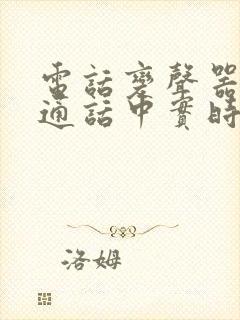 電話變聲器
通話中實時
洛姆